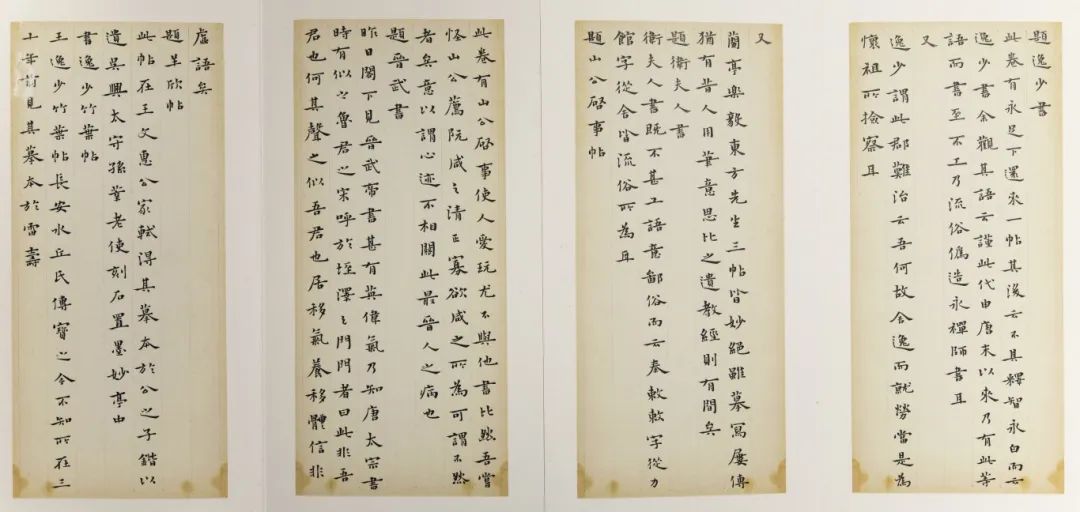 題逸少書
此卷有永足下還來一帖其後云不具釋智永白而云
逸少書余觀其語云謹此代申唐末以來乃有此等
語而書至不工乃流俗偽造永禪師書耳
又
逸少謂此郡難治云吾何故舍逸而就勞當是為
懷祖所撿察耳
又
蘭亭樂毅東方先生三帖皆妙絕雖摹寫屢傳
猶有昔人用筆意思比之遺教經則有間矣
題衛夫人書
衛夫人書既不甚工語意鄙俗而云奉敕敕字從力
館字從舍皆流俗所為耳
題山公啟事帖
此卷有山公啟事使人愛玩尤不與他書比然吾嘗
怪山公薦阮咸之清正寡欲咸之所為可謂不然
者矣意以謂心迹不相關此最晉人之病也
題晉武書
昨日閣下見晉武帝書甚有英偉氣乃知唐太宗書
時有似之魯君之宋呼於垤澤之門門者曰此非吾
君也何其聲之似吾君也居移氣養移體信非
虛語矣
題羊欣帖
此帖在王文惠公家軾得其摹本於公之子鍇以
遺吳興太守孫莘老使刻石置墨妙亭中
書逸少竹葉帖
王逸少竹葉帖長安水丘氏傳寶之今不知所在三
十年前見其摹本於雷壽